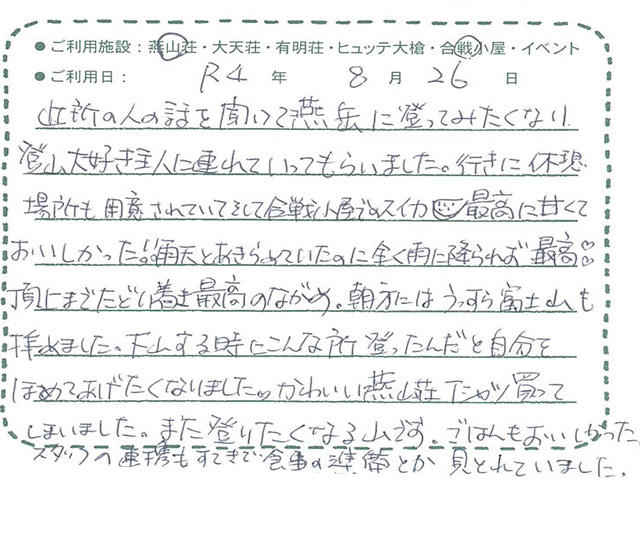 ● ご利用施設：燕山荘・大天荘・有明荘・ヒュッテ大槍・合戦小屋・イベント
● ご利用日： R4 年 8 月 26 日
近所の人の話を聞いて燕岳に登ってみたくなり
登山大好き主人に連れていってもらいました。行きに休憩
場所も用意されていてそして合戦小屋でのスイカ 最高に甘くて
おいしかった!!雨天とあきらめていたのに全く雨に降られず最高♡♡
頂上までたどり着き最高のながめ。朝方にはうっすら富士山も
拝めました。下山する時にこんな所登ったんだと自分を
ほめてあげたくなりました。かわいい燕山荘Tシャツ買って
しまいました。また登りたくなる山です。ごはんもおいしかった。
スタッフの連携もすてきで食事の準備とか見とれていました。